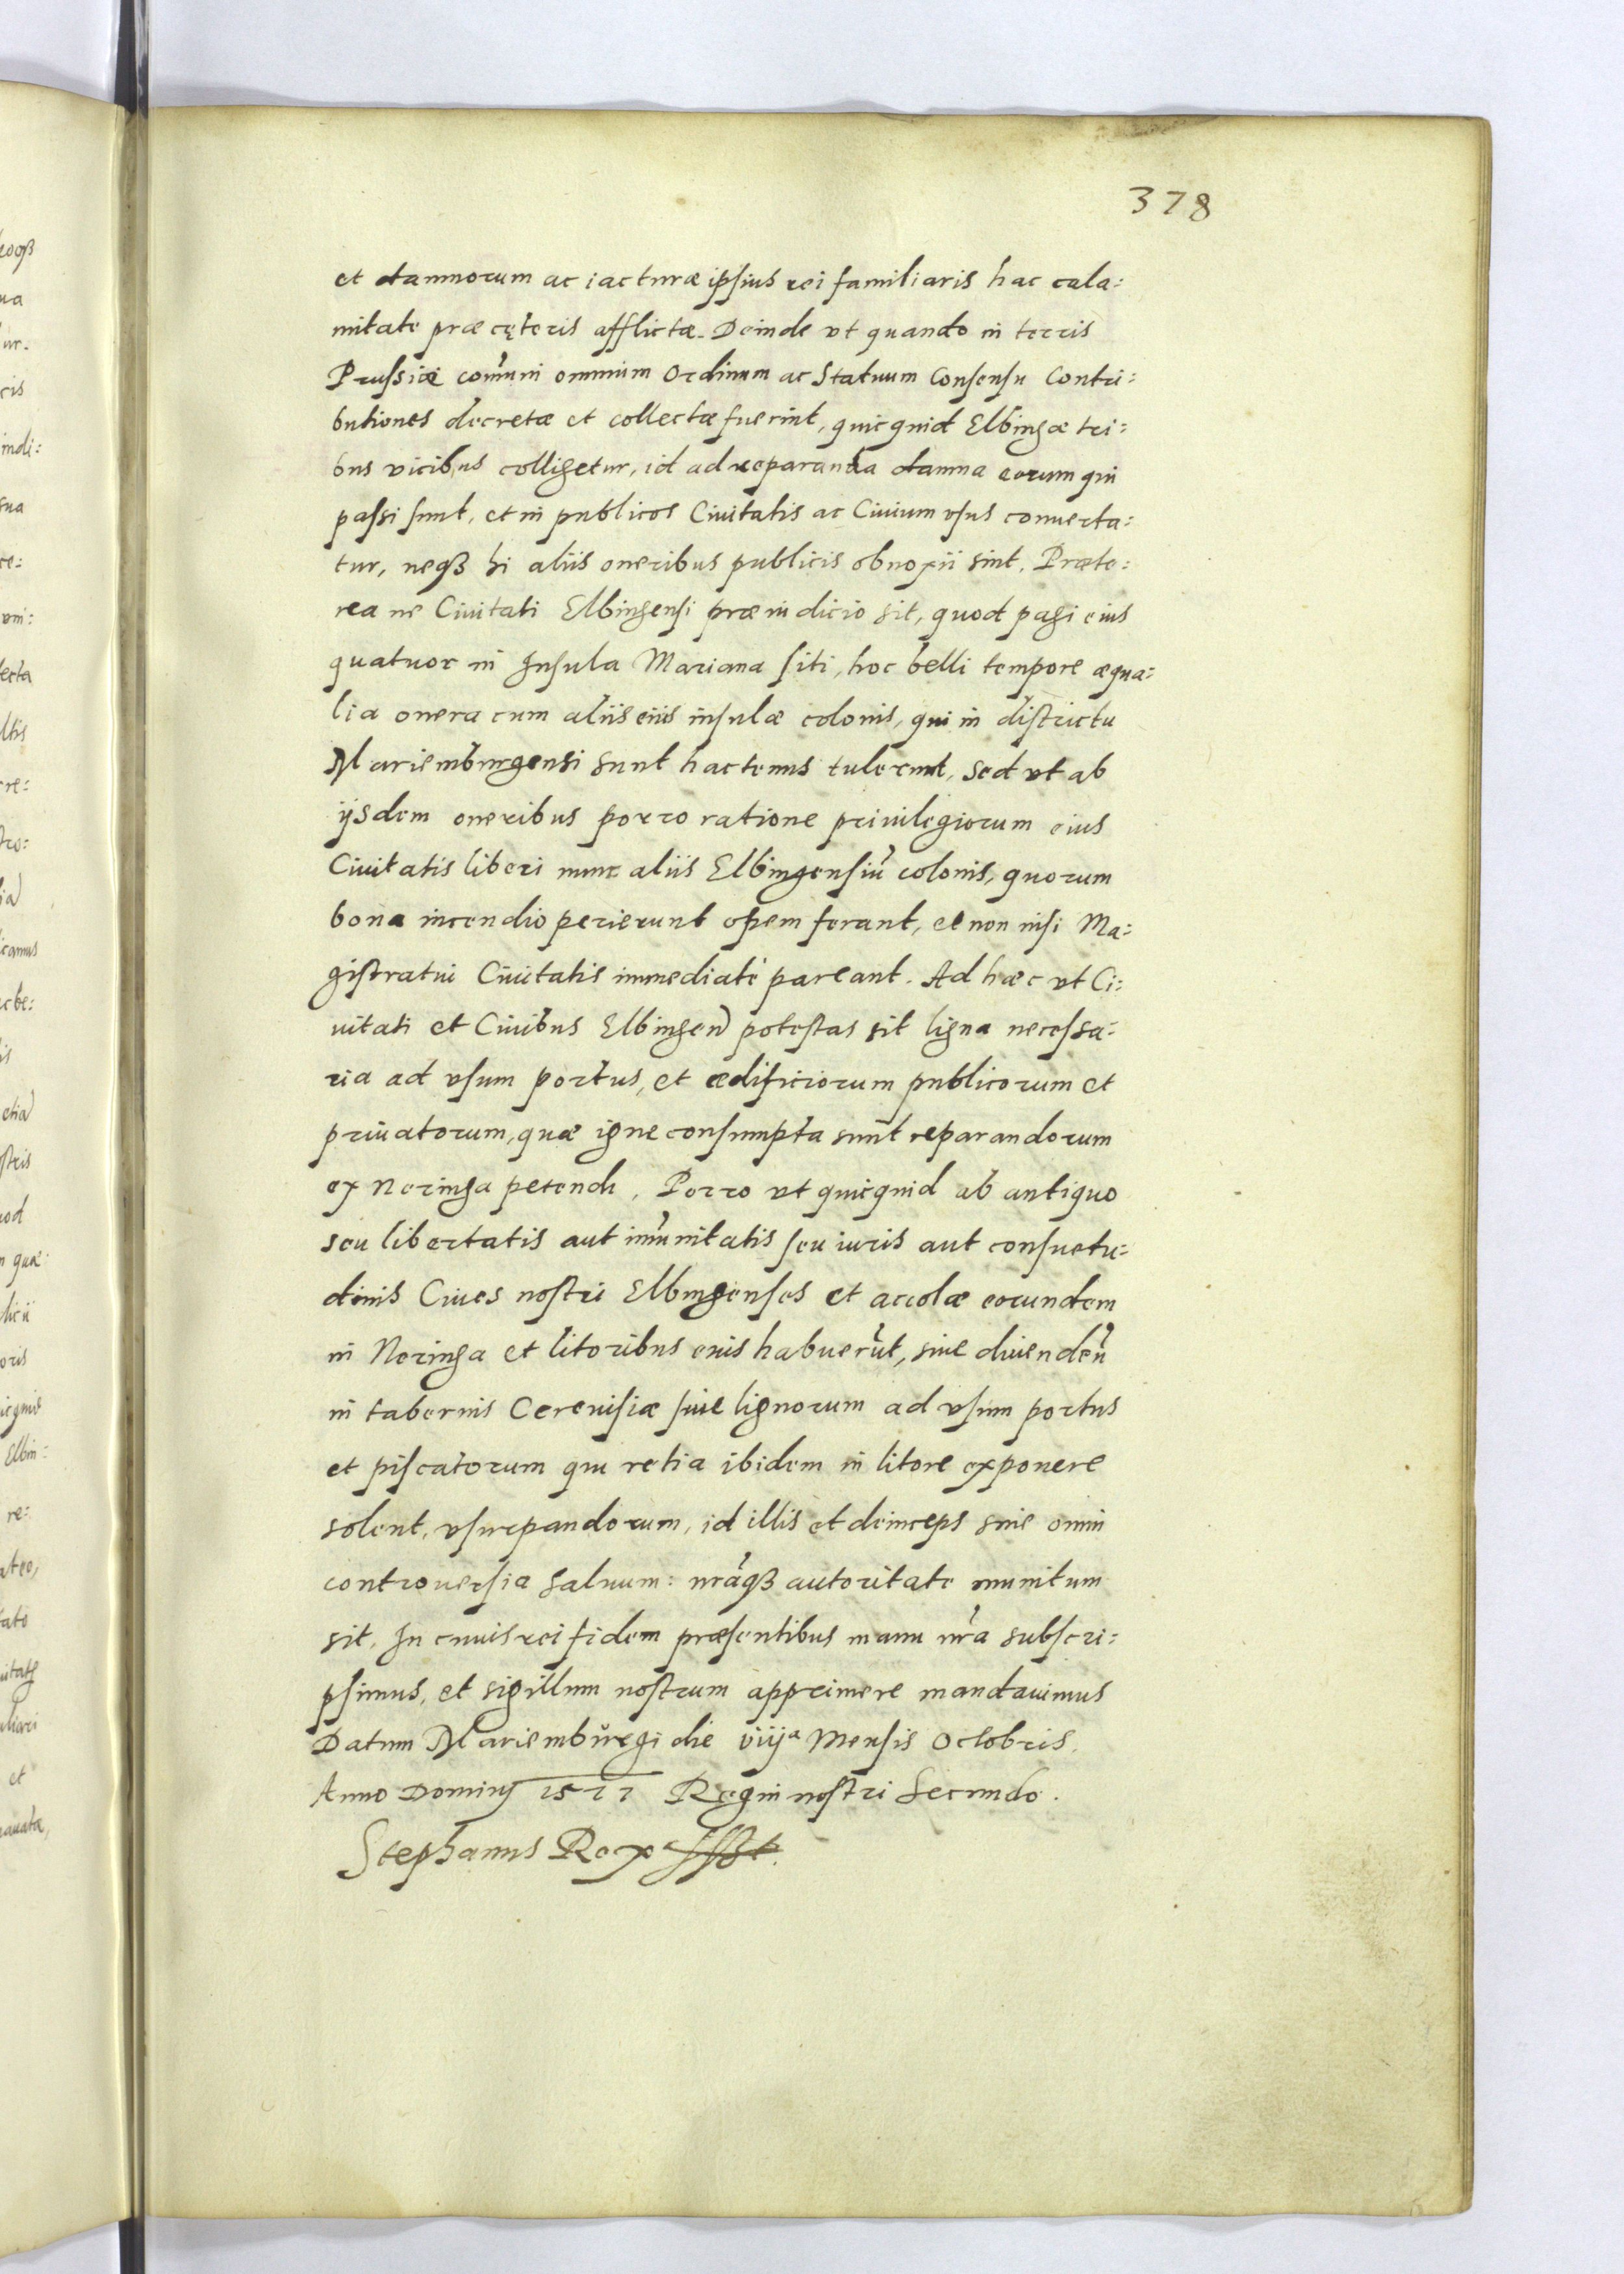 378
et damnorum ac iacturæ ipsius rei familiaris hac cala:
mitate præ cęteris afflictæ. Deinde vt quando in terris
Prussiæ com̃uni omnium Ordinum ac Statuum Consensu Contri:
butiones decretæ et collectæ fuerint, quicquid Elbingæ tri:
bus vicibus colligetur, id ad reparanda damna eorum qui
passi sunt, et in publicos Ciuitatis ac Ciuium vsus conuerta:
tur, neqꝫ hi aliis oneribus publicis obnoxii sint. Præte:
rea ne Ciuitati Elbingensi præiudicio sit, quod pagi eius
quatuor in Insula Mariana siti, hoc belli tempore æqua:
lia onera cum aliis eiis insulæ colonis, qui in districtu
Mariemburgensi sunt hactenus tulerunt, sed vt ab
ijsdem oneribus porro ratione priuilegiorum eius
Ciuitatis liberi nunc aliis Elbingensiũ colonis, quorum
bona incendio perierunt opem ferant, et non nisi Ma:
gistratui Ciuitatis immediatè pareant. Ad hæc vt Ci:
uitati et Ciuibus Elbingen̄ potestas sit ligna necessa:
ria ad vsum portus, et ædificiorum publicorum et
priuatorum, quæ igne consumpta sunt reparandorum
ex Neringa petendi. Porro vt quicquid ab antiquo
seu libertatis aut im̃unitatis seu iuris aut consuetu:
dinis Ciues nostri Elbingenses et accolæ eorundem
in Neringa et litoribus euis habuerũt, siue diuendeñ
in tabernis Cereuisiæ siue lignorum ad vsum portus
et piscatorum qui retia ibidem in litore exponere
solent, vsurpandorum, id illis et deinceps sine omni
controuersia saluum: nr̃aqꝫ autoritate munitum
sit. In cuuis rei fidem præsentibus manu nr̃a subscri:
psimus, et sigillum nostrum apprimere mandauimus
Datum Mariemburgi die viijᵃ Mensis Octobris.
Anno Dominj 1577 Regni nostri Secundo.
Stephanus Rex sſßt.